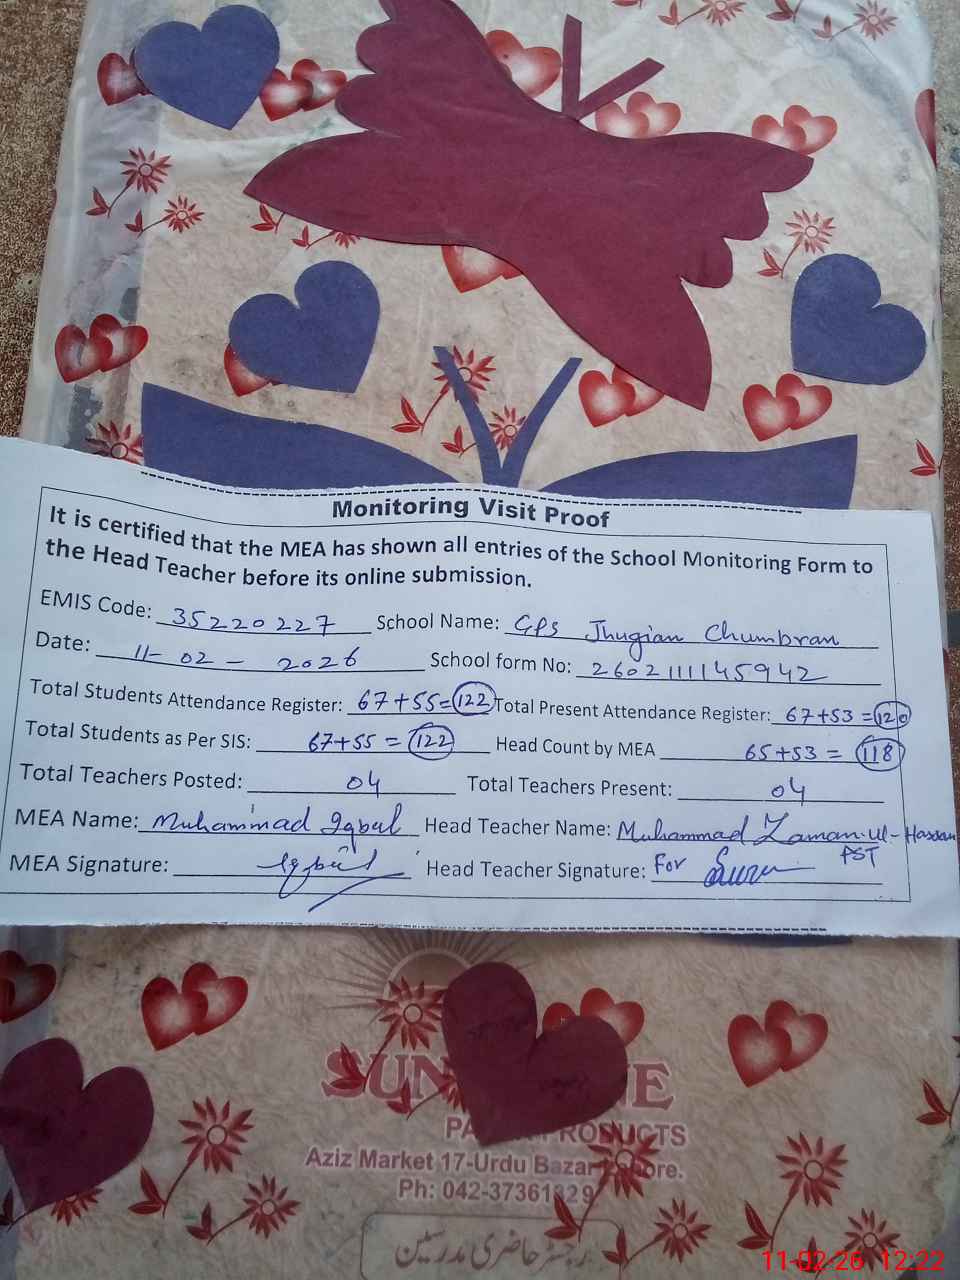 Monitoring Visit Proof
It is certified that the MEA has shown all entries of the School Monitoring Form to
the Head Teacher before its online submission.
EMIS Code: 35220227 School Name: GPS Jhugian Chumbran
Date: 11-02-2026 School form No: 2602111145942
Total Students Attendance Register: 67+55=122 Total Present Attendance Register: 67+53=120
Total Students as Per SIS: 67+55=122 Head Count by MEA 65+53=118
Total Teachers Posted: 04 Total Teachers Present: 04
MEA Name: Muhammad Iqbal Head Teacher Name: Muhammad Zaman-ul-Hassan
PST
MEA Signature: Iqbal Head Teacher Signature: For
PRODUCTS
Aziz Market 17-Urdu Bazar
Ph: 042-37361829
رجسٹر حاضری مدرسین
11-02-26 12:22